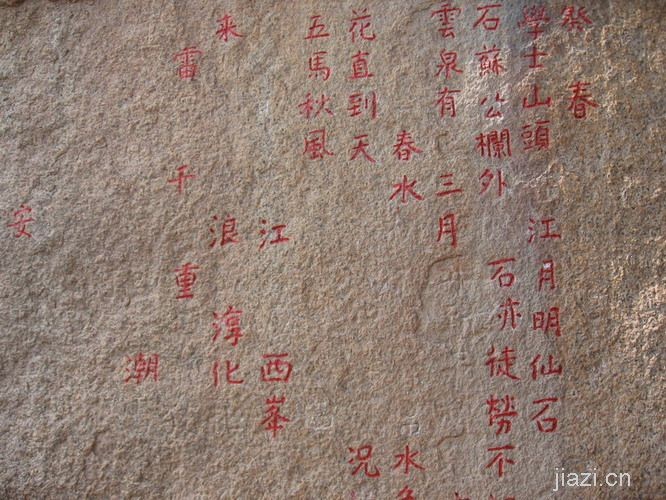 癸春
學士山頭江月明仙石
石蘇公欄外石亦徒勞不
雲泉有三月
春水水
花直到天況
五馬秋風
江西峯
来浪淳化
雷千重
潮
安
jiazi.cn